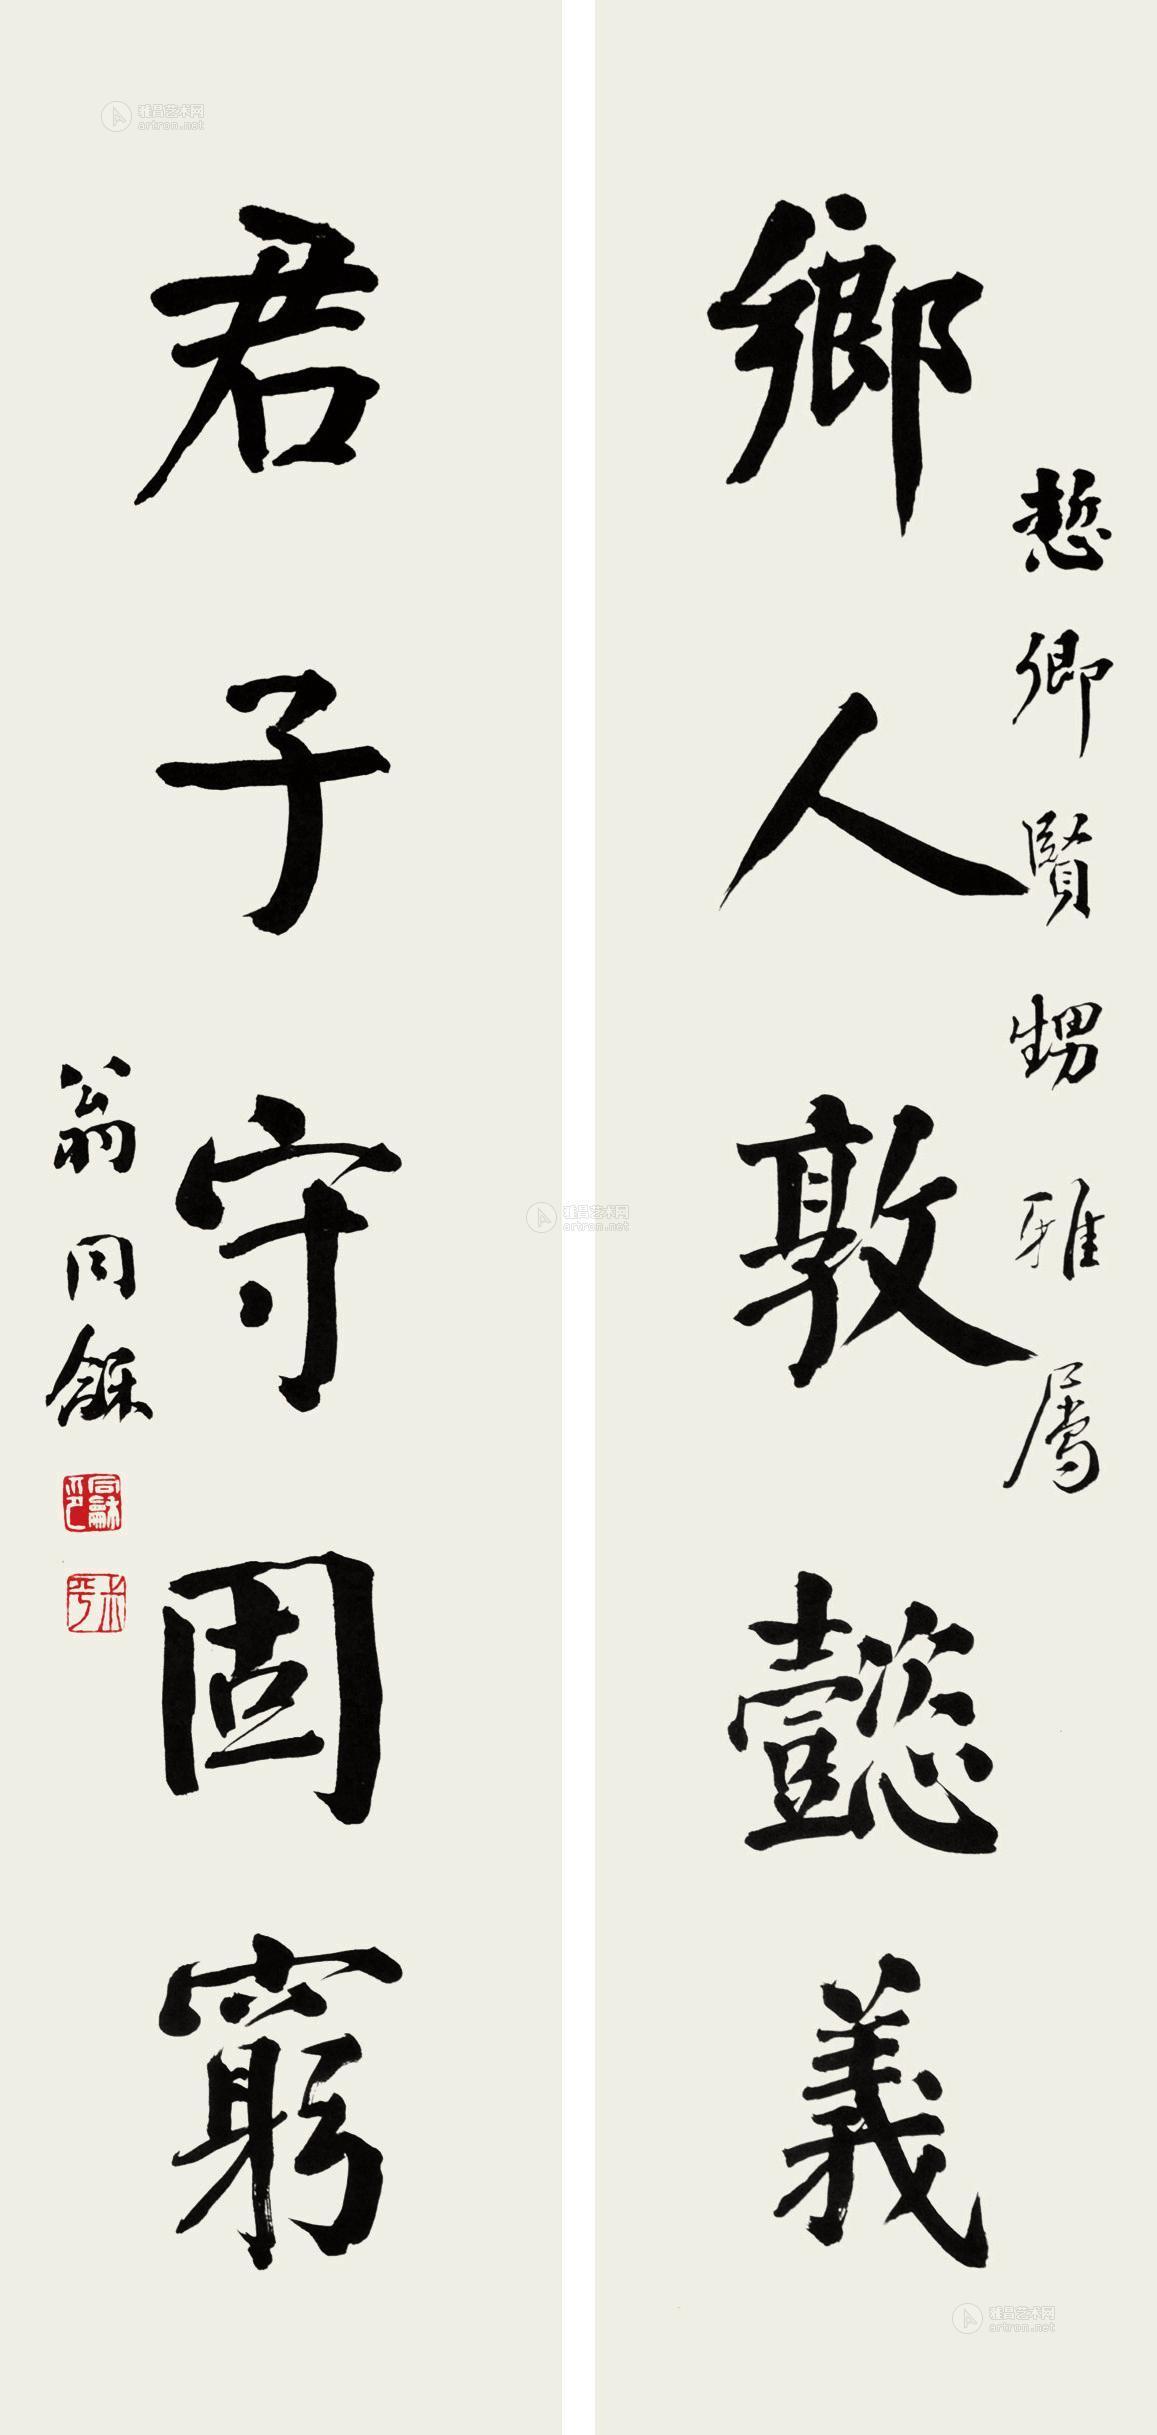 悊卿賢甥雅屬
鄉人敦懿義
君子守固窮
翁同龢
同龢印
叔平
雅昌艺术网
artron.net
雅昌艺术网
artron.net
雅昌艺术网
artron.net